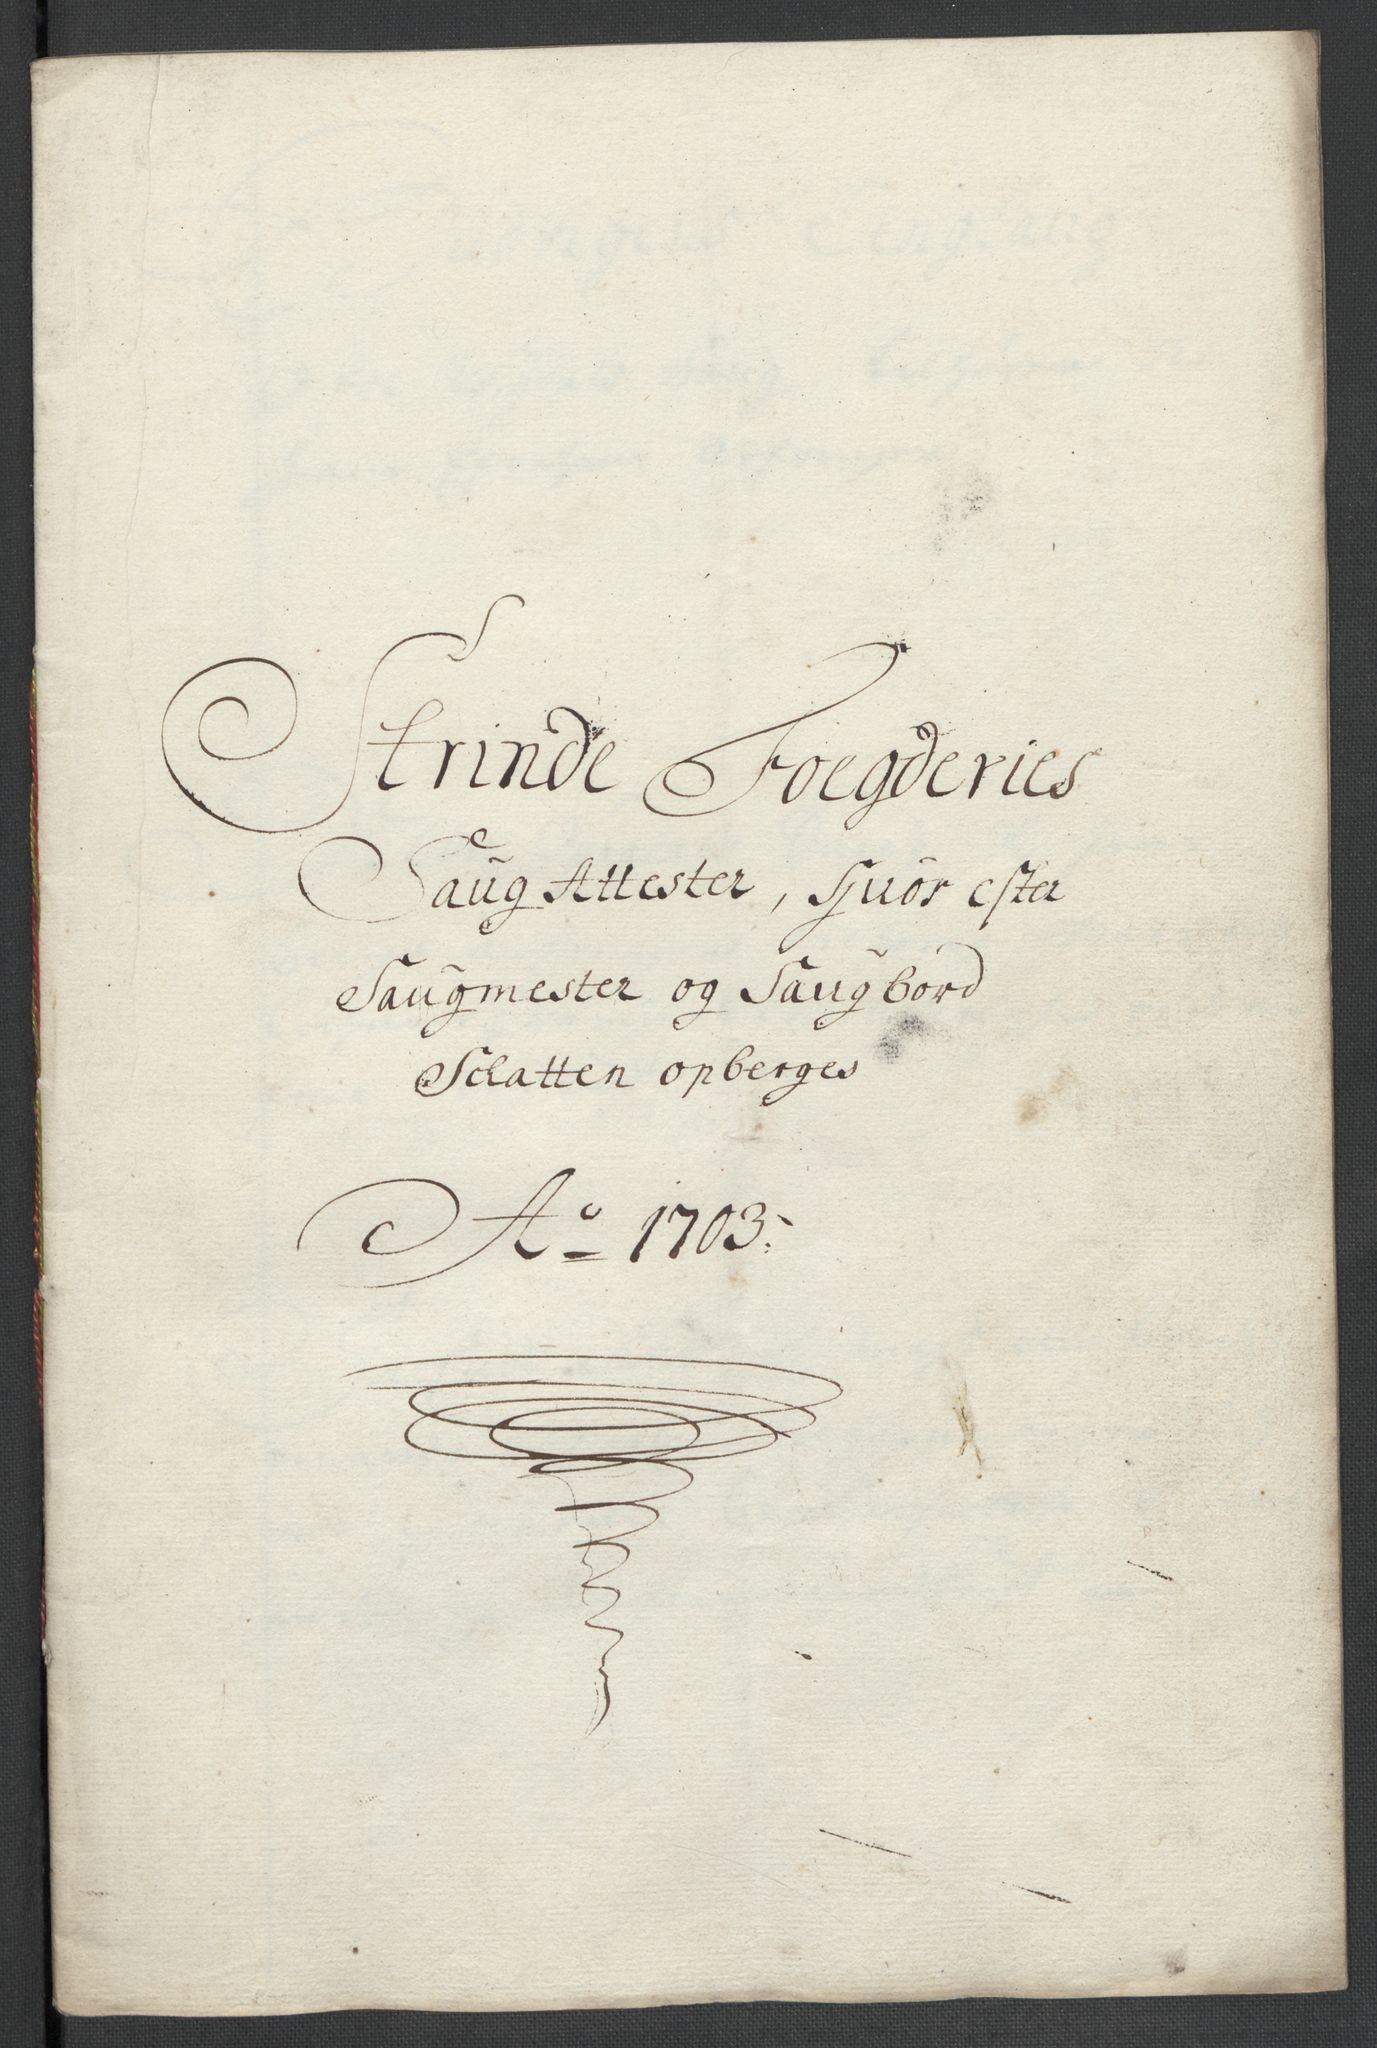 Strinde Foegderies
Saug Attester, hvor efter
Saugmester og Saugbord
Schatten opberges
Ao 1703.